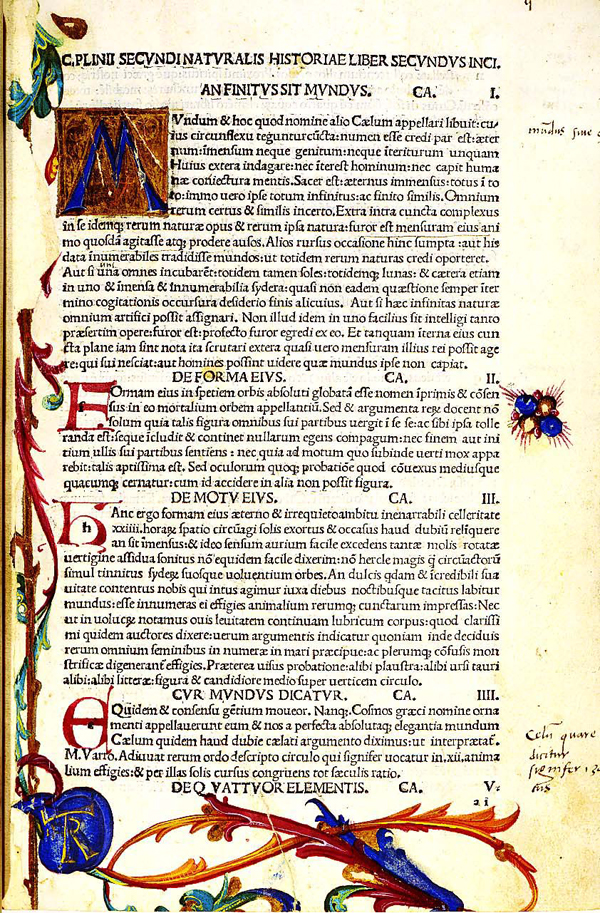 C. PLINII SECVNDI NATVRALIS HISTORIAE LIBER SECVNDVS INCI.
AN FINITVS SIT MVNDVS. CA. I.
MVndum & hoc quod nomine alio Cælum appellari libuit: cu/
ius circunflexu tegunturcūcta: numen esse credi par est: æter
num: īmensum neque genitum: neque īteriturum unquam
Huius extera indagare: nec īterest hominum: nec capit huma
næ cōiectura mentis. Sacer est: æternus immensus: totus ī to
to: immo uero ipse totum infinitus: ac finito similis. Omnium
rerum certus & similis incerto. Extra intra cuncta complexus
in se idemq; rerum naturæ opus & rerum ipsa natura: furor est mensuram eius ani
mo quosdā agitasse atq; prodere ausos. Alios rursus occasione hinc sumpta: aut his
data īnumerabiles tradidisse mundos: ut totidem rerum naturas credi oporteret.
una
Aut si omnes incubarēt: totidem tamen soles: totidemq; lunas: & cætera etiam
in uno & īmensa & innumerabilia sydera: quasi non eadem quæstione semper iter
mino cogitationis occursura desiderio finis alicuius. Aut si hæc infinitas naturæ
omnium artifici possit assignari. Non illud idem in uno facilius sit intelligi tanto
præsertim opere: furor est: profecto furor egredi ex eo. Et tanquam īterna eius cun
cta plane iam sint nota ita scrutari extera quasi uero mensuram illius rei possit age
re: qui sui nesciat: aut homines possint uidere quæ mundus ipse non capiat.
DE FORMA EIVS. CA. II.
FOrmam eius in spetiem orbis absoluti globatā esse nomen īprimis & cōsen
sus in eo mortalium orbem appellantiū. Sed & argumenta reꝝ docent nō
solum quia talis figura omnibus sui partibus uergit ī se se: ac sibi ipsa tolle
randa est: seque īcludit & continet nullarum egens compagum: nec finem aut ini
tium ullis sui partibus sentiens: nec quia ad motum quo subinde uerti mox appa
rebit: talis aptissima est. Sed oculorum quoq; probatiōe quod cōuexus mediusque
quacumq; cernatur: cum id accidere in alia non possit figura.
DE MOTV EIVS. CA. III.
h
HAnc ergo formam eius æterno & irrequieto ambitu inenarrabili celleritate
xxiiii. horaꝝ spatio circūagi solis exortus & occasus haud dubiū relīquere
an sit īmensus: & ideo sensum aurium facile excedens tantæ molis rotatæ
uertigine assidua sonitus nō equidem facile dixerim: nō hercle magis q̄ circūactorū
simul tinnitus sydeꝝ suosque uoluentium orbes. An dulcis qdam & īcredibili sua
uitate contentus nobis qui intus agimur iuxa diebus noctibusque tacitus labitur
mundus: esse innumeras ei effigies animalium rerumq; cunctarum impressas: Nec
ut in uolucꝝ notamus ouis leuitate continuam lubricum corpus: quod clarissi
mi quidem auctores dixere: uerum argumentis indicatur quoniam inde deciduis
rerum omnium seminibus in numeræ in mari præcipue: ac plerumq; cōfusis mon
strificæ digenerant effigies. Præterea uisus probatione: alibi plaustra: alibi ursi tauri
alibi: alibi litteræ: figura & candidiore medio super uerticem circulo.
CVR MVNDVS DICATVR. CA. IIII.
EQuidem & consensu gētium moueor. Nanq;. Cosmos græci nomine orna
menti appellauerunt eum & nos a perfecta absolutaq; elegantia mundum
Cælum quidem haud dubie cælati argumento diximus: ut īterprætat̄.
M. Varro. Adiuuat rerum ordo descripto circulo qui signifer uocatur in. xii. anima
lium effigies: & per illas solis cursus congruens tot sæculis ratio.
DE QVATTVOR ELEMENTIS. CA. V.
a i
mūdus sine
Celū quare
dicitur